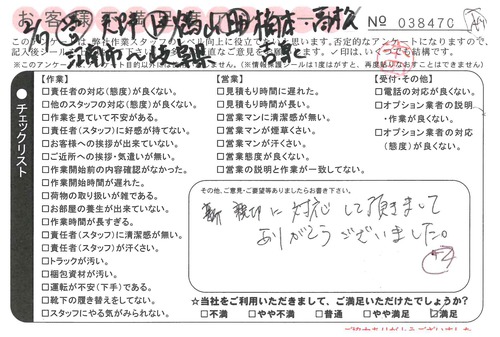 お客様
No 038470
このアンケートは、弊社作業スタッフの
レベル向上に役立て
否定的なアンケートになりますので、
記入後シールを
直なご意見を
✓印は、いくつでも結構です。
※このアンケート
(※情報保護シールは1度はがすと、再度貼りなおすことはできません)
チェックリスト
【作業】
□責任者の対応(態度)が良くない。
□他のスタッフの対応(態度)が良くない。
□作業を見ていて不安がある。
□責任者(スタッフ)に好感が持てない。
□お客様への挨拶が出来ていない。
□ご近所への挨拶・気遣いが無い。
□作業開始前の内容確認がなかった。
□作業開始時間が遅れた。
□荷物の取り扱いが雑である。
□お部屋の養生が出来ていない。
□作業時間が長すぎる。
□責任者(スタッフ)に清潔感が無い。
□責任者(スタッフ)が汗くさい。
□トラックが汚い。
□梱包資材が汚い。
□運転が不安(下手)である。
□靴下の履き替えをしてない。
□スタッフにやる気がみられない。
【営業】
□見積もり時間に遅れた。
□見積もり時間が長い。
□営業マンに清潔感が無い。
□営業マンが煙草くさい。
□営業マンが汗くさい。
□営業態度が良くない。
□営業の説明と作業が一致してない。
【受付・その他】
□電話の対応が良くない。
□オプション業者の説明
・作業が良くない。
□オプション業者の対応
(態度)が良くない。
その他、ご意見・ご要望等ありましたらお書き下さい。
親切に対応して頂きまして
ありがとうございました。
☆当社をご利用いただきまして、ご満足いただけたでしょうか?
□不満 □やや不満 □普通 □やや満足 ☑満足
ご協力ありがとうございました